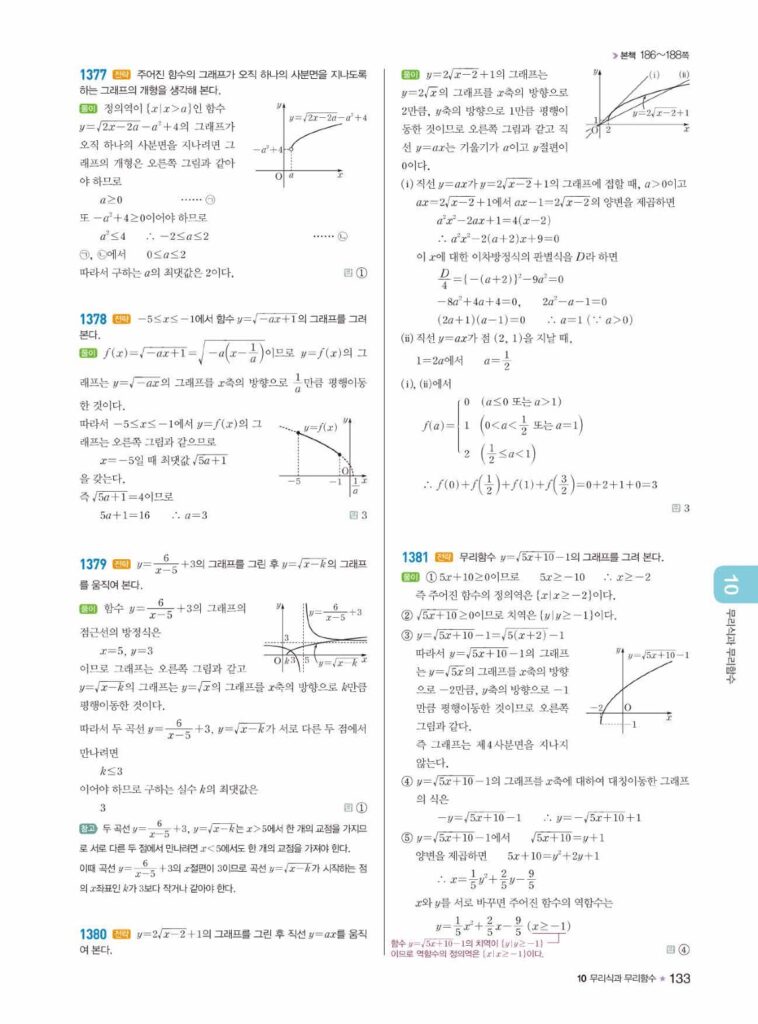 ≫ 본책 186~188쪽
1377 전략 주어진 함수의 그래프가 오직 하나의 사분면을 지나도록
하는 그래프의 개형을 생각해 본다.
풀이 정의역이 {x|x>a}인 함수
y=√(2x-2a)-a²+4의 그래프가
오직 하나의 사분면을 지나려면 그
래프의 개형은 오른쪽 그림과 같아
야 하므로
a≥0 …… ㉠
또 -a²+4≥0이어야 하므로
a²≤4 ∴ -2≤a≤2 …… ㉡
㉠, ㉡에서 0≤a≤2
따라서 구하는 a의 최댓값은 2이다. 답 ①
y
y=√(2x-2a)-a²+4
-a²+4
O a x
1378 전략 -5≤x≤-1에서 함수 y=√(-ax+1)의 그래프를 그려
본다.
풀이 f(x)=√(-ax+1)=√(-a(x-1/a))이므로 y=f(x)의 그
래프는 y=√(-ax)의 그래프를 x축의 방향으로 1/a만큼 평행이동
한 것이다.
따라서 -5≤x≤-1에서 y=f(x)의 그
래프는 오른쪽 그림과 같으므로
x=-5일 때 최댓값 √(5a+1)
을 갖는다.
즉 √(5a+1)=4이므로
5a+1=16 ∴ a=3 답 3
y=f(x) y
-5 -1 O 1/a x
1379 전략 y=6/(x-5)+3의 그래프를 그린 후 y=√(x-k)의 그래프
를 움직여 본다.
풀이 함수 y=6/(x-5)+3의 그래프의
점근선의 방정식은
x=5, y=3
이므로 그래프는 오른쪽 그림과 같고
y=√(x-k)의 그래프는 y=√x의 그래프를 x축의 방향으로 k만큼
평행이동한 것이다.
따라서 두 곡선 y=6/(x-5)+3, y=√(x-k)가 서로 다른 두 점에서
만나려면
k≤3
이어야 하므로 구하는 실수 k의 최댓값은
3 답 ①
y
y=6/(x-5)+3
3
O k 3 5 y=√(x-k) x
참고 두 곡선 y=6/(x-5)+3, y=√(x-k)는 x>5에서 한 개의 교점을 가지므
로 서로 다른 두 점에서 만나려면 x<5에서도 한 개의 교점을 가져야 한다.
이때 곡선 y=6/(x-5)+3의 x절편이 3이므로 곡선 y=√(x-k)가 시작하는 점
의 x좌표인 k가 3보다 작거나 같아야 한다.
1380 전략 y=2√(x-2)+1의 그래프를 그린 후 직선 y=ax를 움직
여 본다.
풀이 y=2√(x-2)+1의 그래프는
y=2√x의 그래프를 x축의 방향으로
2만큼, y축의 방향으로 1만큼 평행이
동한 것이므로 오른쪽 그림과 같고 직
선 y=ax는 기울기가 a이고 y절편이
0이다.
y (i) (ii)
y=2√(x-2)+1
1
O 2 x
(i) 직선 y=ax가 y=2√(x-2)+1의 그래프에 접할 때, a>0이고
ax=2√(x-2)+1에서 ax-1=2√(x-2)의 양변을 제곱하면
a²x²-2ax+1=4(x-2)
∴ a²x²-2(a+2)x+9=0
이 x에 대한 이차방정식의 판별식을 D라 하면
D/4={-(a+2)}²-9a²=0
-8a²+4a+4=0, 2a²-a-1=0
(2a+1)(a-1)=0 ∴ a=1 (∵ a>0)
(ii) 직선 y=ax가 점 (2, 1)을 지날 때,
1=2a에서 a=1/2
(i), (ii)에서
f(a)={ 0 (a≤0 또는 a>1)
1 (0<a<1/2 또는 a=1)
2 (1/2≤a<1)
∴ f(0)+f(1/2)+f(1)+f(3/2)=0+2+1+0=3
답 3
1381 전략 무리함수 y=√(5x+10)-1의 그래프를 그려 본다.
풀이 ① 5x+10≥0이므로 5x≥-10 ∴ x≥-2
즉 주어진 함수의 정의역은 {x|x≥-2}이다.
② √(5x+10)≥0이므로 치역은 {y|y≥-1}이다.
③ y=√(5x+10)-1=√(5(x+2))-1
따라서 y=√(5x+10)-1의 그래프
는 y=√(5x)의 그래프를 x축의 방향
으로 -2만큼, y축의 방향으로 -1
만큼 평행이동한 것이므로 오른쪽
그림과 같다.
즉 그래프는 제4사분면을 지나지
않는다.
y y=√(5x+10)-1
-2 O x
-1
④ y=√(5x+10)-1의 그래프를 x축에 대하여 대칭이동한 그래프
의 식은
-y=√(5x+10)-1 ∴ y=-√(5x+10)+1
⑤ y=√(5x+10)-1에서 √(5x+10)=y+1
양변을 제곱하면 5x+10=y²+2y+1
∴ x=1/5y²+2/5y-9/5
x와 y를 서로 바꾸면 주어진 함수의 역함수는
y=1/5x²+2/5x-9/5 (x≥-1)
함수 y=√(5x+10)-1의 치역이 {y|y≥-1}
이므로 역함수의 정의역은 {x|x≥-1}이다.
답 ④
10
무리식과 무리함수
10 무리식과 무리함수 ★ 133